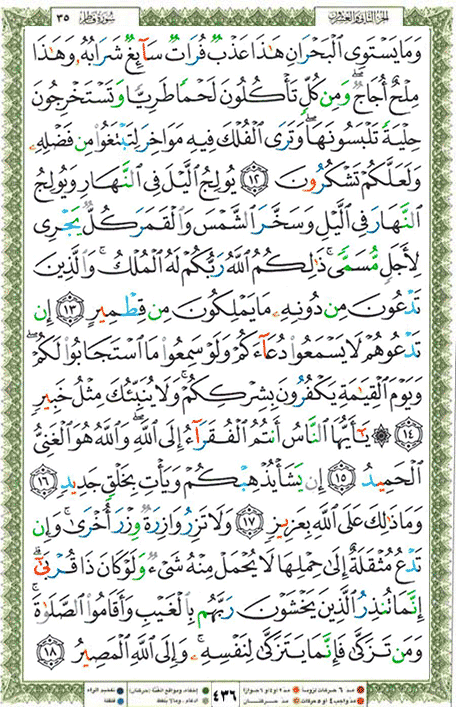 الجزء الثاني والعشرون سورة فاطر ٣٥
وَمَا يَسْتَوِى ٱلْبَحْرَانِ هَٰذَا عَذْبٌ فُرَاتٌ سَآئِغٌ شَرَابُهُۥ وَهَٰذَا
مِلْحٌ أُجَاجٌ ۖ وَمِن كُلٍّ تَأْكُلُونَ لَحْمًا طَرِيًّا وَتَسْتَخْرِجُونَ
حِلْيَةً تَلْبَسُونَهَا ۖ وَتَرَى ٱلْفُلْكَ فِيهِ مَوَاخِرَ لِتَبْتَغُوا۟ مِن فَضْلِهِۦ
وَلَعَلَّكُمْ تَشْكُرُونَ ١٢ يُولِجُ ٱلَّيْلَ فِى ٱلنَّهَارِ وَيُولِجُ
ٱلنَّهَارَ فِى ٱلَّيْلِ وَسَخَّرَ ٱلشَّمْسَ وَٱلْقَمَرَ كُلٌّ يَجْرِى
لِأَجَلٍ مُّسَمًّى ۚ ذَٰلِكُمُ ٱللَّهُ رَبُّكُمْ لَهُ ٱلْمُلْكُ ۚ وَٱلَّذِينَ
تَدْعُونَ مِن دُونِهِۦ مَا يَمْلِكُونَ مِن قِطْمِيرٍ ١٣ إِن
تَدْعُوهُمْ لَا يَسْمَعُوا۟ دُعَآءَكُمْ وَلَوْ سَمِعُوا۟ مَا ٱسْتَجَابُوا۟ لَكُمْ ۖ
وَيَوْمَ ٱلْقِيَٰمَةِ يَكْفُرُونَ بِشِرْكِكُمْ ۚ وَلَا يُنَبِّئُكَ مِثْلُ خَبِيرٍ
١٤ ۞ يَٰٓأَيُّهَا ٱلنَّاسُ أَنتُمُ ٱلْفُقَرَآءُ إِلَى ٱللَّهِ ۖ وَٱللَّهُ هُوَ ٱلْغَنِىُّ
ٱلْحَمِيدُ ١٥ إِن يَشَأْ يُذْهِبْكُمْ وَيَأْتِ بِخَلْقٍ جَدِيدٍ ١٦
وَمَا ذَٰلِكَ عَلَى ٱللَّهِ بِعَزِيزٍ ١٧ وَلَا تَزِرُ وَازِرَةٌ وِزْرَ أُخْرَىٰ ۚ وَإِن
تَدْعُ مُثْقَلَةٌ إِلَىٰ حِمْلِهَا لَا يُحْمَلْ مِنْهُ شَىْءٌ وَلَوْ كَانَ ذَا قُرْبَىٰٓ ۗ
إِنَّمَا تُنذِرُ ٱلَّذِينَ يَخْشَوْنَ رَبَّهُم بِٱلْغَيْبِ وَأَقَامُوا۟ ٱلصَّلَوٰةَ ۚ
وَمَن تَزَكَّىٰ فَإِنَّمَا يَتَزَكَّىٰ لِنَفْسِهِۦ ۚ وَإِلَى ٱللَّهِ ٱلْمَصِيرُ ١٨
٤٣٦